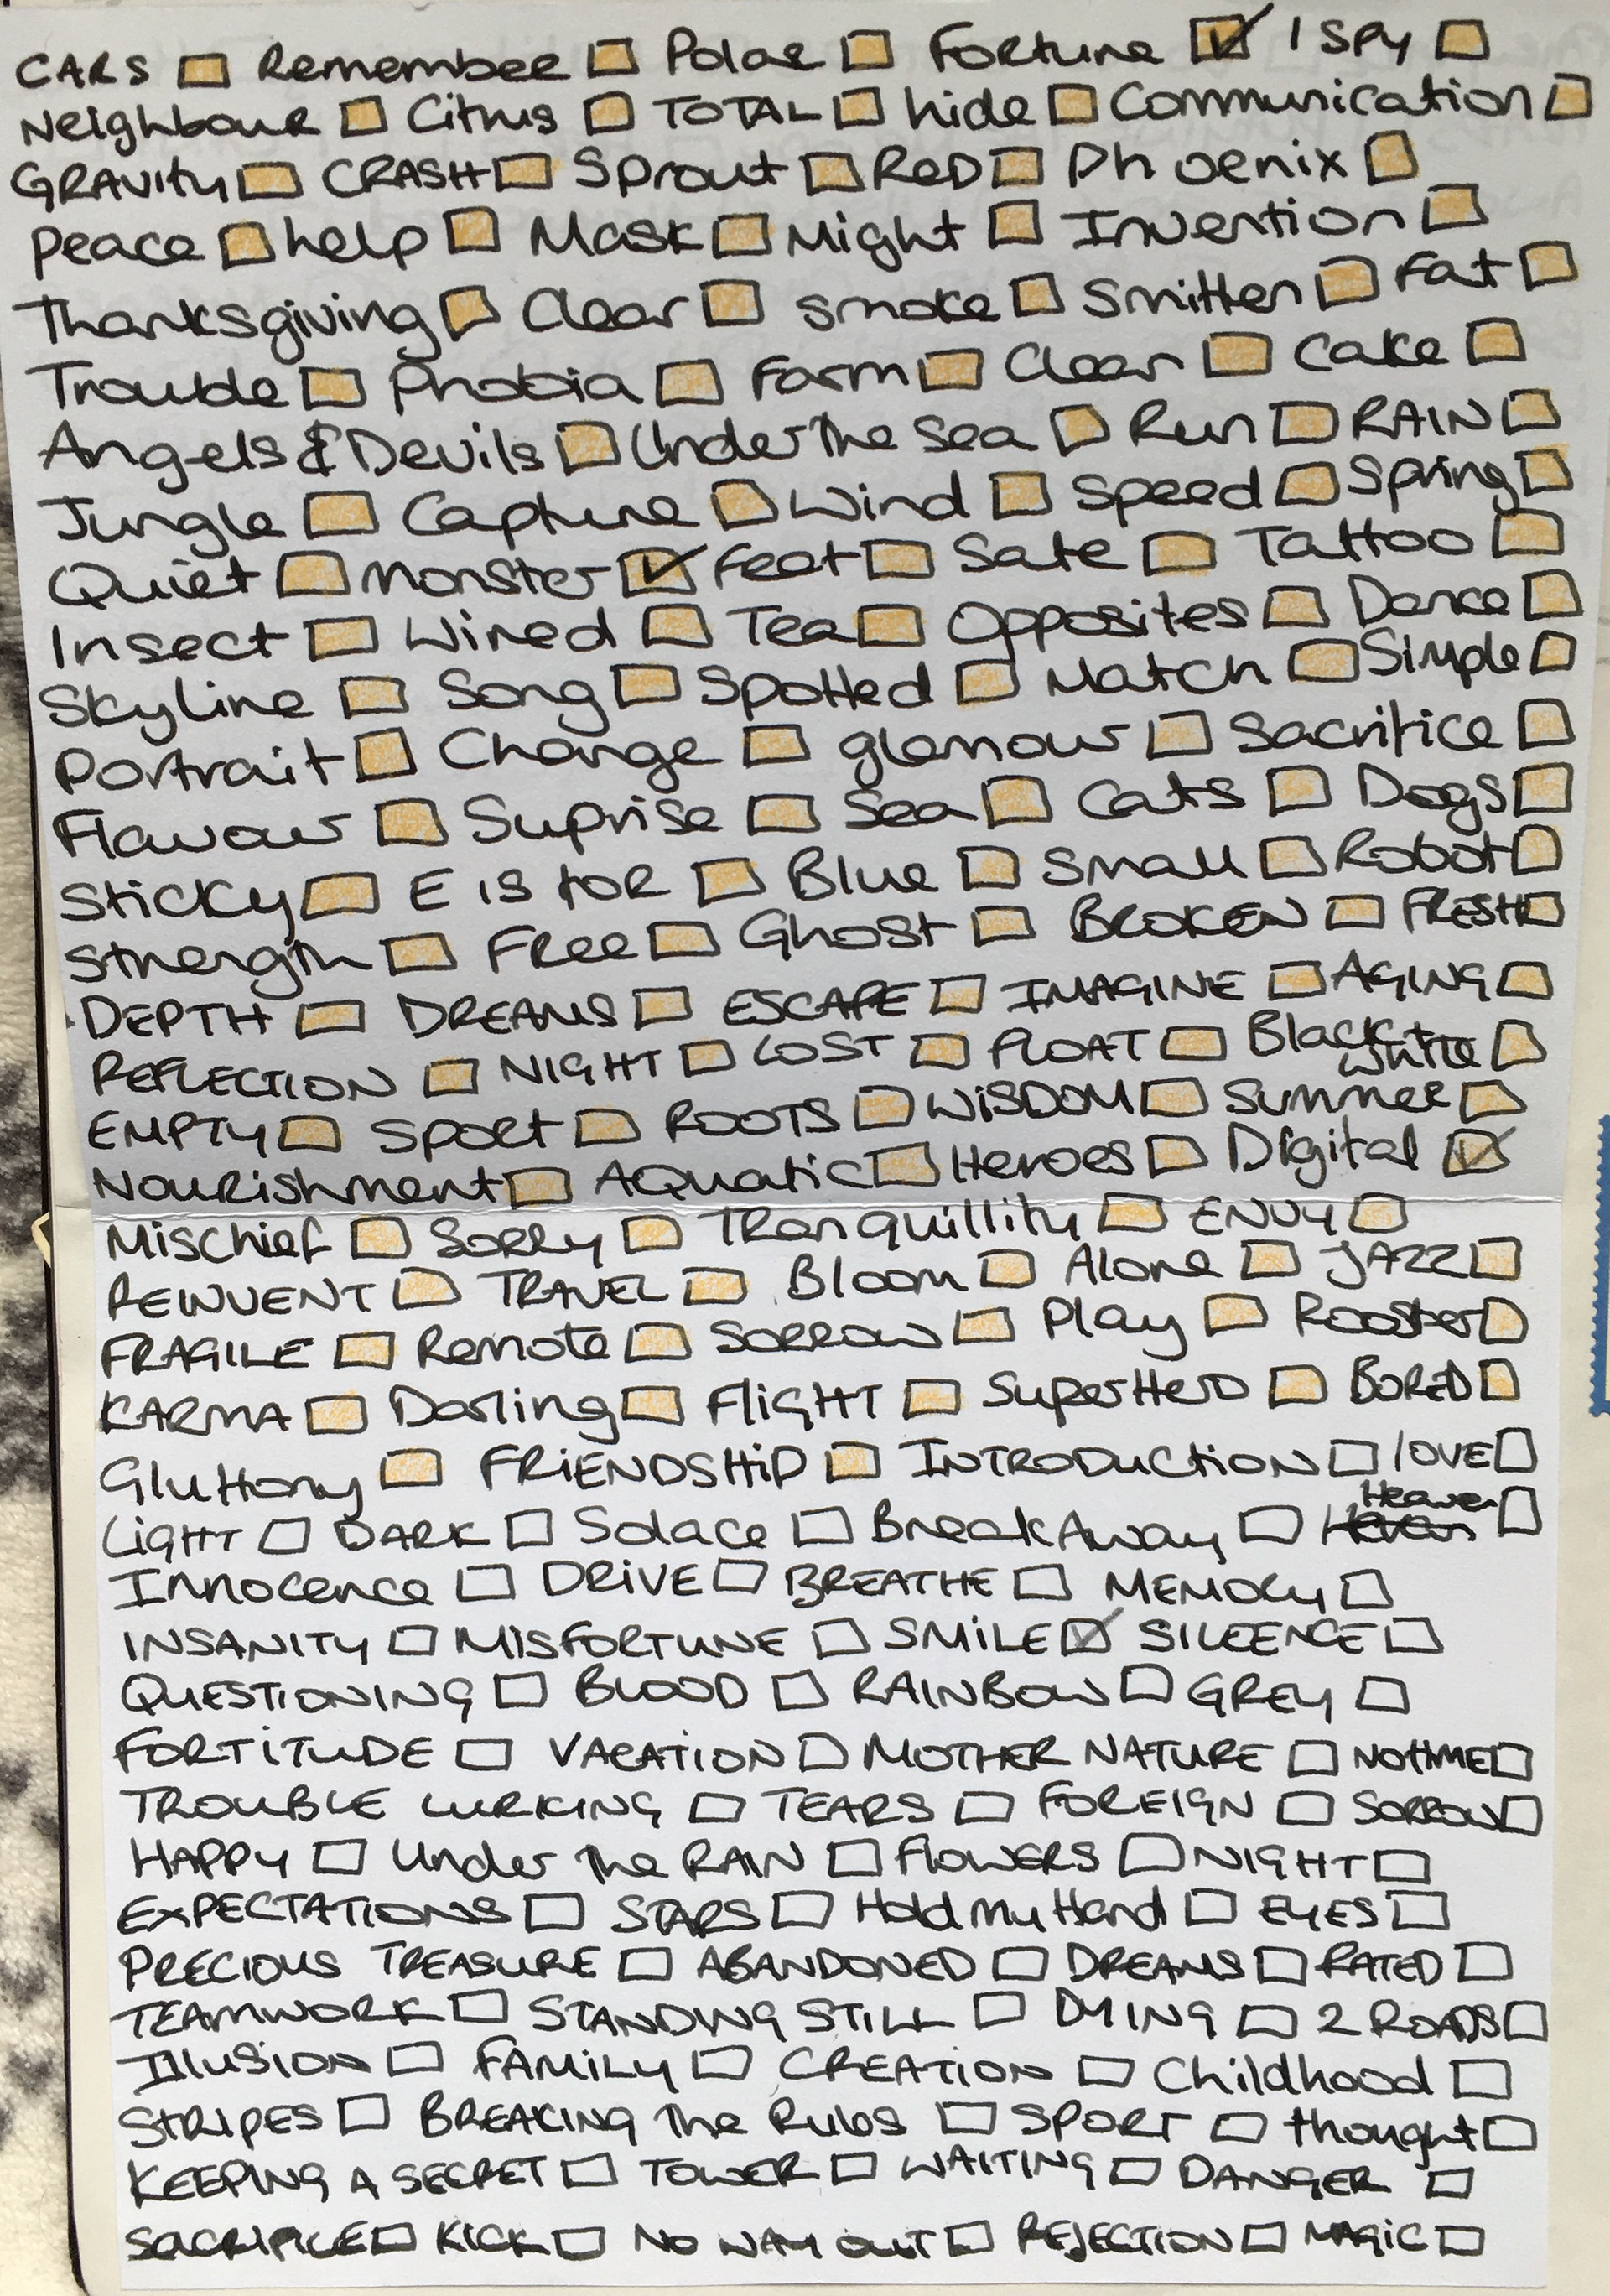 CARS ☐ Remember ☐ Polar ☐ Fortune ☑ I SPY ☐
Neighbour ☐ Citrus ☐ TOTAL ☐ hide ☐ Communication ☐
GRAVITY ☐ CRASH ☐ Sprout ☐ ReD ☐ Phoenix ☐
Peace ☐ help ☐ Mask ☐ Might ☐ Invention ☐
Thanksgiving ☐ Clear ☐ smoke ☐ Smitten ☐ Fat ☐
Trouble ☐ Phobia ☐ Farm ☐ Clear ☐ Cake ☐
Angels & Devils ☐ Under The Sea ☐ Run ☐ RAIN ☐
Jungle ☐ Capture ☐ Wind ☐ Speed ☐ Spring ☐
Quiet ☐ Monster ☑ Feet ☐ Safe ☐ Tattoo ☐
Insect ☐ Wired ☐ Tea ☐ Opposites ☐ Dance ☐
Skyline ☐ Song ☐ Spotted ☐ Match ☐ Simple ☐
Portrait ☐ Change ☐ glamour ☐ Sacrifice ☐
Flavour ☐ Suprise ☐ Sea ☐ Cats ☐ Dogs ☐
Sticky ☐ E is for ☐ Blue ☐ Small ☐ Robot ☐
Strength ☐ Free ☐ Ghost ☐ BROKEN ☐ FRESH ☐
DEPTH ☐ DREAMS ☐ ESCAPE ☐ IMAGINE ☐ AGING ☐
REFLECTION ☐ NIGHT ☐ LOST ☐ FLOAT ☐ Black + white ☐
EMPTY ☐ Sport ☐ ROOTS ☐ WiSDOM ☐ Summer ☐
Nourishment ☐ AQuatic ☐ Heroes ☐ Digital ☑
Mischief ☐ Sorry ☐ Tranquillity ☐ ENVY ☐
REINVENT ☐ TRAVEL ☐ Bloom ☐ Alone ☐ JAZZ ☐
FRAGILE ☐ Remote ☐ Sorrow ☐ Play ☐ Rooster ☐
KARMA ☐ Darling ☐ FliGHT ☐ SuperHero ☐ BORED ☐
Gluttony ☐ FRiENDSHiP ☐ INTRODUCtiON ☐ lOVE ☐
LiGHT ☐ DARK ☐ Solace ☐ Break Away ☐ Heaven ☐
Innocence ☐ DRiVE ☐ BREATHE ☐ MEMORY ☐
INSANITY ☐ MISFORTUNE ☐ SMiLE ☑ SILEENCE ☐
QUESTIONING ☐ BLOOD ☐ RAINBOW ☐ GREY ☐
FORTiTUDE ☐ VACATION ☐ MOTHER NATURE ☐ NO tiME ☐
TROUBLE LURKING ☐ TEARS ☐ FOREIGN ☐ SORROW ☐
HAPPY ☐ Under The RAIN ☐ FlOWERS ☐ NIGHT ☐
EXPECTATIONS ☐ STARS ☐ Hold My Hand ☐ EYES ☐
PRECIOUS TREASURE ☐ ABANDONED ☐ DREAMS ☐ RATED ☐
TEAMWORK ☐ STANDING STILL ☐ DYING ☐ 2 ROADS ☐
IllUSION ☐ FAMiLY ☐ CREATION ☐ Childhood ☐
STRIPES ☐ BREAKING The Rules ☐ SPORT ☐ thought ☐
KEEPING A SECRET ☐ TOWER ☐ WAITING ☐ DANGER ☐
SACRIFICE ☐ KICK ☐ NO WAY OUT ☐ REJECTION ☐ MAGIC ☐